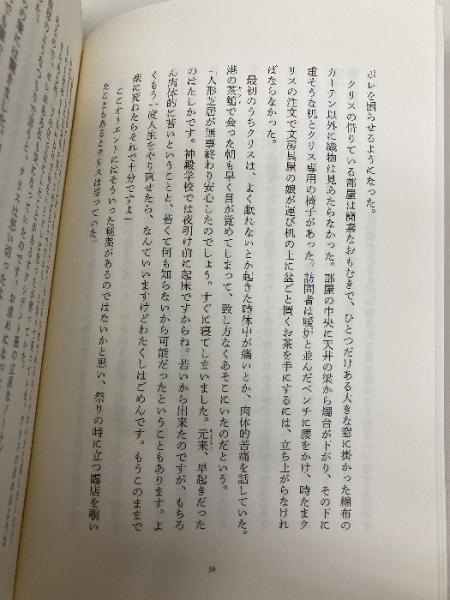 ポレを困らせるようになった。
クリスの借りている部屋は簡素なおもむきで、ひとつだけある大きな窓に掛かった綿布の
カーテン以外に織物は見あたらなかった。部屋の中央に天井の梁から燭台が下がり、その下に
重そうな机とクリス専用の椅子があった。訪問者は暖炉と並んだベンチに腰をかけ、時たまク
リスの注文で文房具屋の娘が運び机の上に盆ごと置くお茶を手にするには、立ち上がらなけれ
ばならなかった。
最初のうちクリスは、よく眠れないとか起きた時体中が痛いとか、肉体的苦痛を話していた。
港の茶館で会った朝も早く目が覚めてしまって、致し方なくあそこにいたのだという。
「人形芝居が無事終わり安心したのでしょう。すぐに寝てしまいました。元来、早起きだった
のはたしかです。神殿学校では夜明け前に起床ですからね。若いから出来たのですが、もちろ
ん肉体的に若いということと、若くて何も知らないから可能だったということもあります。よ
くもう一度人生をやり直せたら、なんていいますけどわたくしはごめんです。もうこのままで
楽に死ねたらそれで十分ですよ」
ここオリエントにはそういった秘薬があるのではないかと思い、祭りの時に立つ露店を覗い
たこともあるとクリスは笑っていた。
38